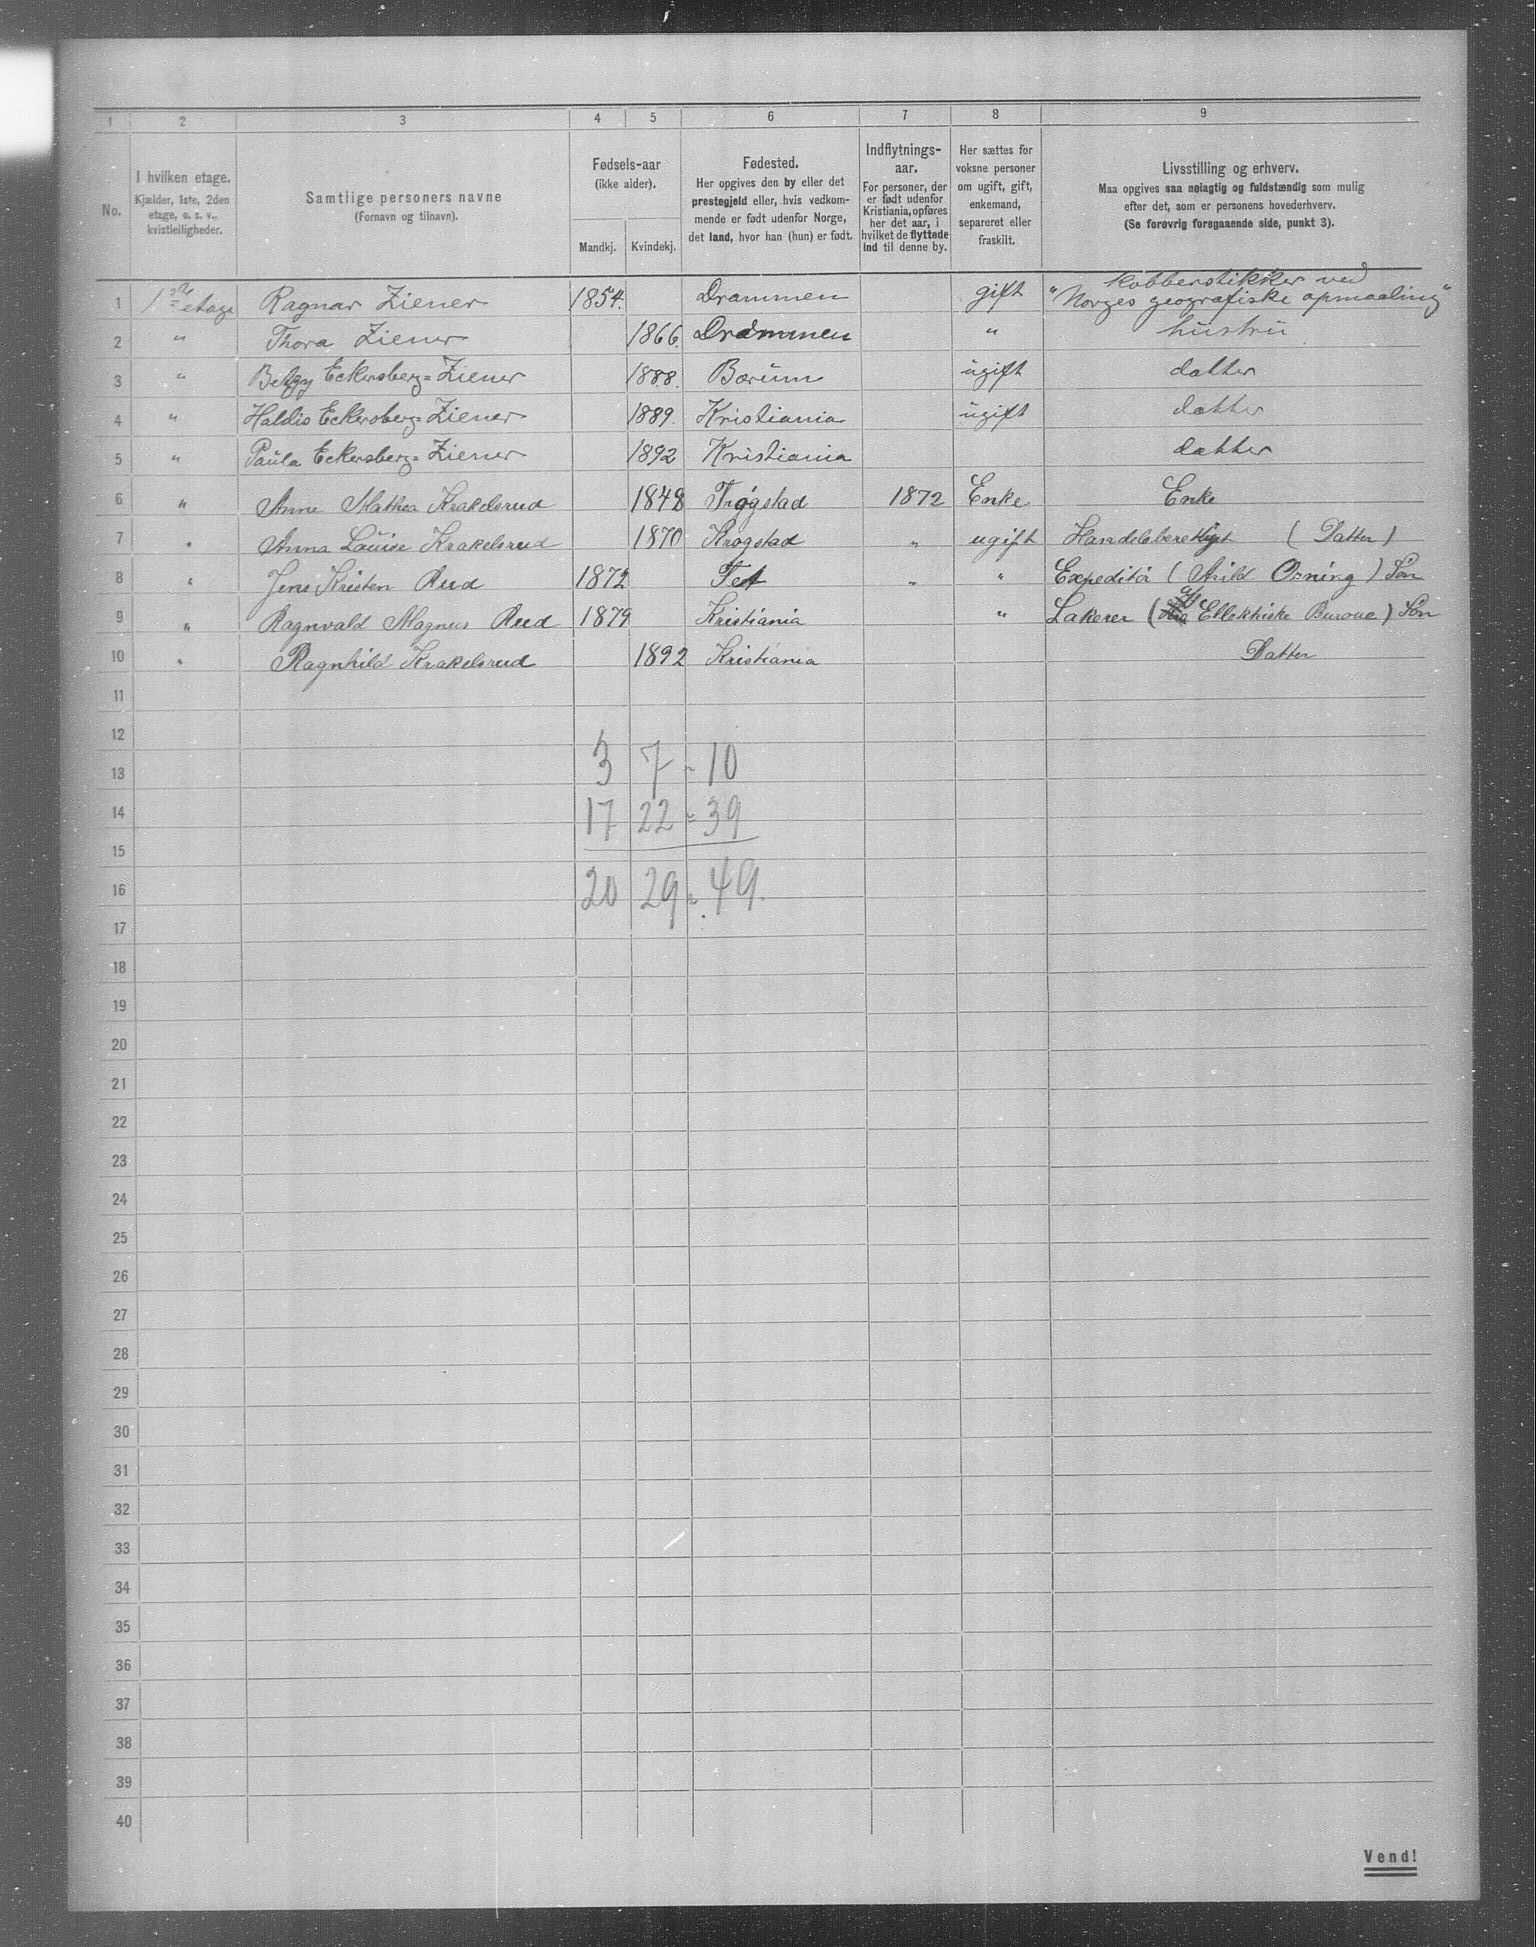 1 2 3 4 5 6 7 8 9
No.
I hvilken etage.
Kjælder, 1ste, 2den
etage, o. s. v.,
kvistleiligheder.
Samtlige personers navne
(Fornavn og tilnavn).
Fødsels-aar
(ikke alder).
Mandkj. Kvindekj.
Fødested.
Her opgives den by eller det
prestegjeld eller, hvis vedkom-
mende er født udenfor Norge,
det land, hvor han (hun) er født.
Indflytnings-
aar.
For personer, der
er født udenfor
Kristiania, opføres
her det aar, i
hvilket de flyttede
ind til denne by.
Her sættes for
voksne personer
om ugift, gift,
enkemand,
separeret eller
fraskilt.
Livsstilling og erhverv.
Maa opgives saa nøiagtig og fuldstændig som mulig
efter det, som er personens hovederhverv.
(Se forøvrig foregaaende side, punkt 3).
kobberstikker ved
1 1 etage Ragnar Ziener 1854. Drammen gift "Norges geografiske opmaaling"
2 " Thora Ziener 1866. Drammen " hustru
3 " Betzy Eckersberg=Ziener 1888. Bærum ugift datter
4 " Haldis Eckersberg=Ziener 1889. Kristiania ugift datter
5 " Paula Eckersberg=Ziener 1892 Kristiania datter
6 " Anne Mathea Krakelsrud 1848 Trøgstad 1872 Enke Enke
7 " Anna Louise Krakelsrud 1870 Krogstad " ugift Handelsberettiget (Datter)
8 " Jens Kristen Rud 1872 Fet " " Expeditør (Arild Orning) Søn
9 " Ragnvald Magnus Rud 1879 Kristiania " Lakerer (Ellektriske Buroue) Søn
10 " Ragnhild Krakelsrud 1892 Kristiania Datter
11
12
13 3 7 = 10
14 17 22 = 39
15
16 20 29 = 49.
17
18
19
20
21
22
23
24
25
26
27
28
29
30
31
32
33
34
35
36
37
38
39
40
Vend!